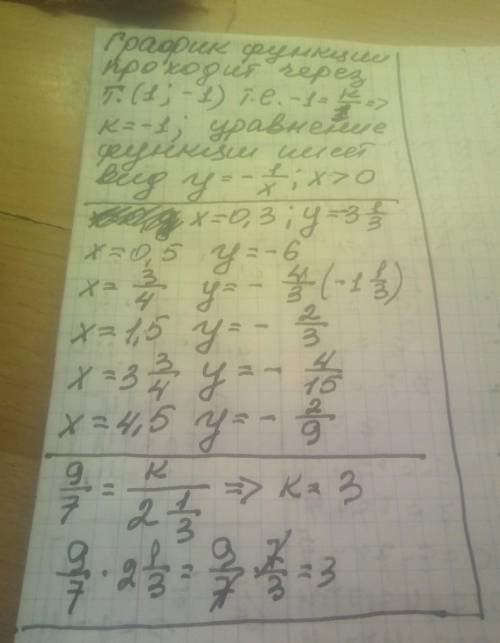 График функции
проходит через
т. (1; -1) т.е. -1 = к/1 =>
к = -1; уравнение
функции имеет
вид y = - 1/x; x > 0
x = 0,3; y = -3 1/3
x = 0,5 y = -6
x = 3/4 y = - 4/3 (-1 1/3)
x = 1,5 y = - 2/3
x = 3 3/4 y = - 4/15
x = 4,5 y = - 2/9
9/7 = к/(2 1/3) => к = 3
9/7 · 2 1/3 = 9/7 · 7/3 = 3